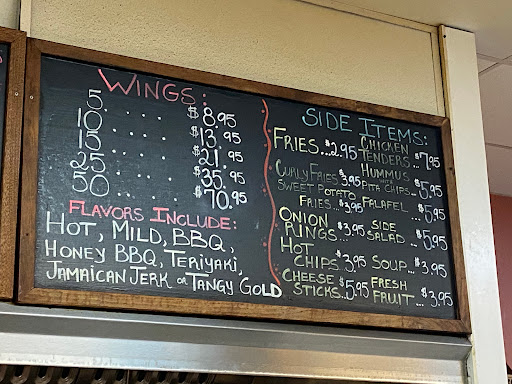 WINGS:
5.....$8.95
10.....$13.95
15.....$21.95
25.....$35.95
50.....$70.95
FLAVORS INCLUDE:
HOT, MILD, BBQ,
HONEY BBQ, TERIYAKI,
JAMAICAN JERK or TANGY GOLD
SIDE ITEMS:
FRIES...$2.95
CURLY FRIES $3.95
SWEET POTATO
FRIES...$3.95
ONION
RINGS...$3.95
HOT
CHIPS $3.95
CHEESE
STICKS...$5.95
CHICKEN
TENDERS...$7.95
HUMMUS
WITH
PITA CHIPS..$5.95
FALAFEL...$5.95
SIDE
SALAD...$5.95
SOUP...$3.95
FRESH
FRUIT...$3.95